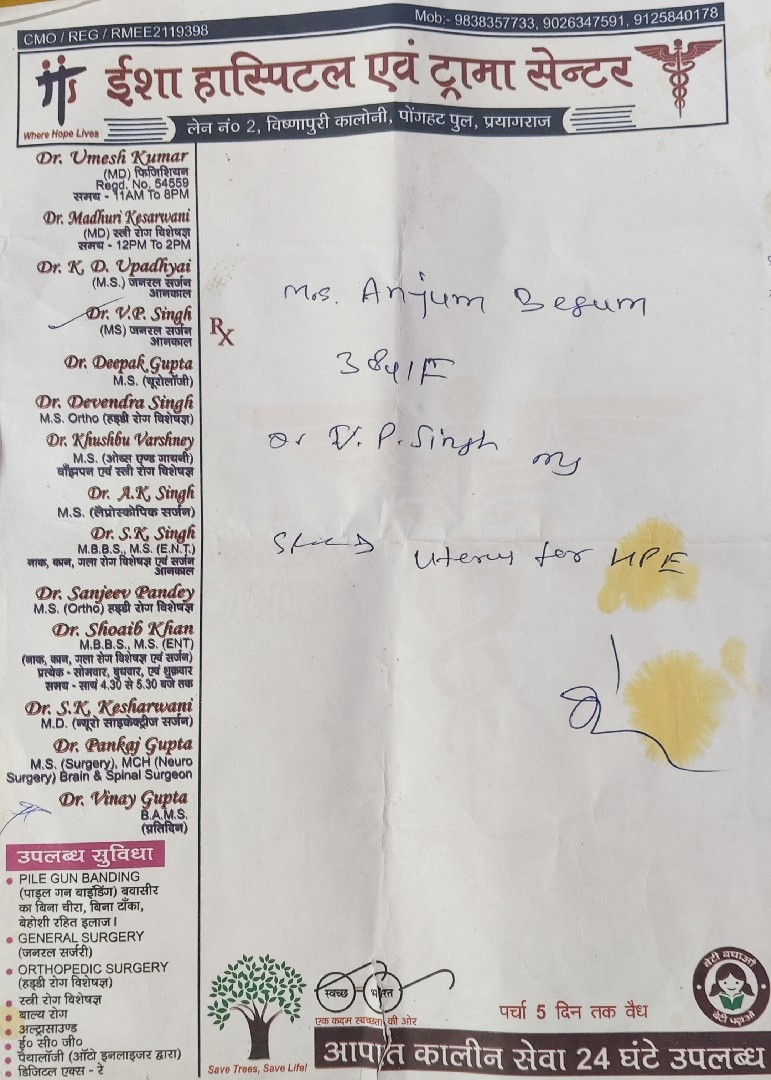 CMO / REG / RMEE2119398
Mob:- 9838357733, 9026347591, 9125840178
ईशा हास्पिटल एवं ट्रामा सेन्टर
Where Hope Lives
लेन नं० 2, विष्णापुरी कालोनी, पोंगहट पुल, प्रयागराज
Dr. Umesh Kumar
(MD) फिजिशियन
Regd. No. 54559
समय - 11AM To 8PM
Dr. Madhuri Kesarwani
(MD) स्त्री रोग विशेषज्ञ
समय - 12PM To 2PM
Dr. K. D. Upadhyai
(M.S.) जनरल सर्जन
आनकाल
Dr. V.P. Singh
(MS) जनरल सर्जन
आनकाल
Dr. Deepak Gupta
M.S. (यूरोलॉजी)
Dr. Devendra Singh
M.S. Ortho (हड्डी रोग विशेषज्ञ)
Dr. Khushbu Varshney
M.S. (ओब्स एण्ड गायनी)
बाँझपन एवं स्त्री रोग विशेषज्ञ
Dr. A.K. Singh
M.S. (लैप्रोस्कोपिक सर्जन)
Dr. S.K. Singh
M.B.B.S., M.S. (E.N.T.)
नाक, कान, गला रोग विशेषज्ञ एवं सर्जन
आनकाल
Dr. Sanjeev Pandey
M.S. (Ortho) हड्डी रोग विशेषज्ञ
Dr. Shoaib Khan
M.B.B.S., M.S. (ENT)
(नाक, कान, गला रोग विशेषज्ञ एवं सर्जन)
प्रत्येक - सोमवार, बुधवार, एवं शुक्रवार
समय - सायं 4.30 से 5.30 बजे तक
Dr. S.K. Kesharwani
M.D. (न्यूरो साइकेक्ट्रीज सर्जन)
Dr. Pankaj Gupta
M.S. (Surgery), MCH (Neuro
Surgery) Brain & Spinal Surgeon
Dr. Vinay Gupta
B.A.M.S.
(प्रतिदिन)
उपलब्ध सुविधा
PILE GUN BANDING
(पाइल गन बाइंडिंग) बवासीर
का बिना चीरा, बिना टाँका,
बेहोशी रहित इलाज।
GENERAL SURGERY
(जनरल सर्जरी)
ORTHOPEDIC SURGERY
(हड्डी रोग विशेषज्ञ)
स्त्री रोग विशेषज्ञ
बाल्य रोग
अल्ट्रासाउण्ड
ई० सी० जी०
पैथालॉजी (ऑटो इनलाइजर द्वारा)
डिजिटल एक्स - रे
Rx
Mrs. Anjum Begum
38y/F
Dr V.P. Singh
Uterus for HPE
Save Trees, Save Life!
स्वच्छ भारत
एक कदम स्वच्छता की ओर
पर्चा 5 दिन तक वैध
बेटी बचाओ
बेटी पढ़ाओ
आपात कालीन सेवा 24 घंटे उपलब्ध